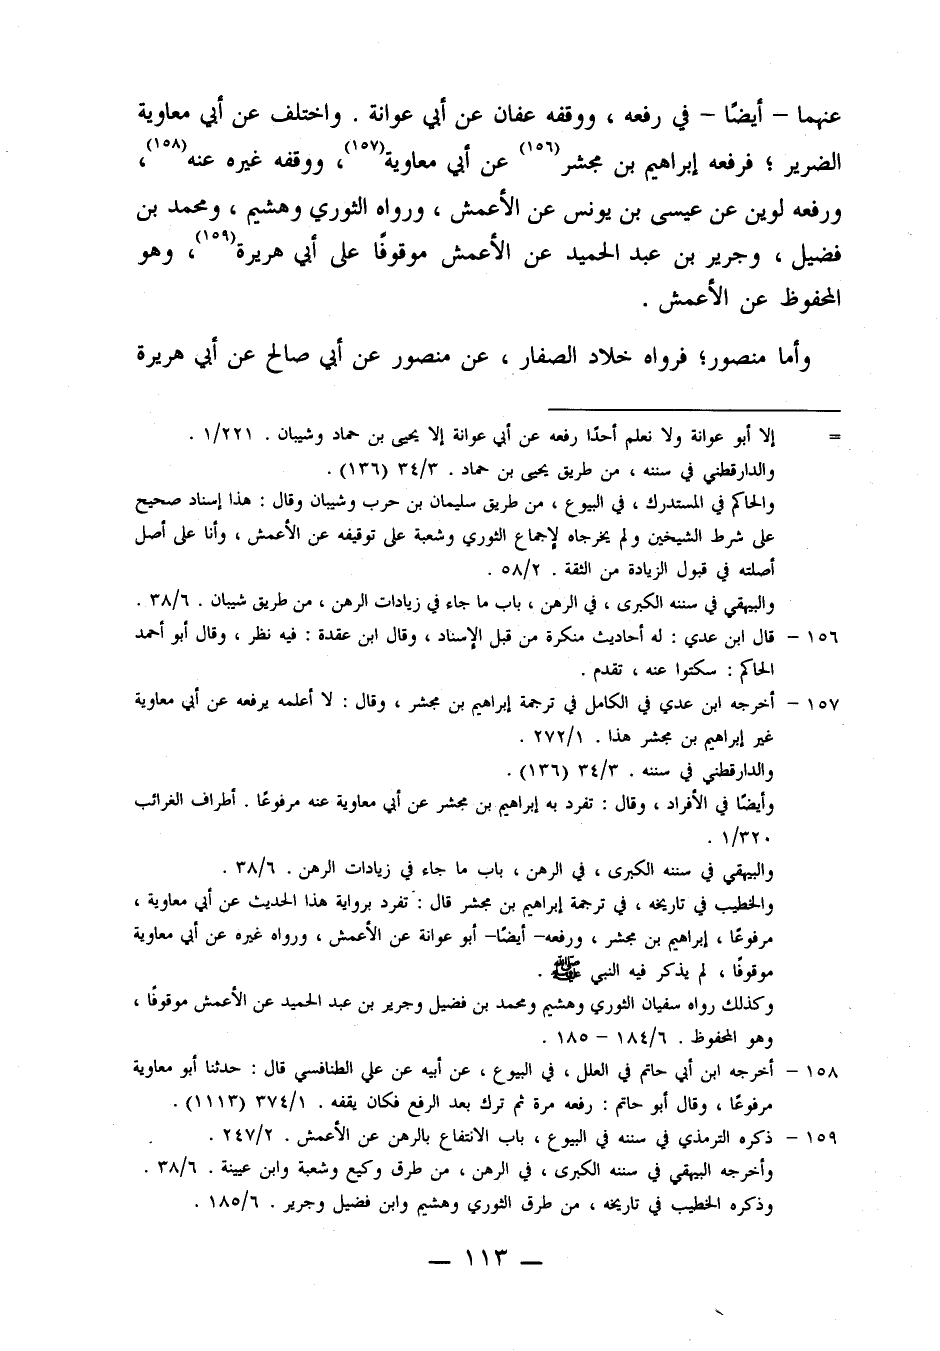 عنهما – أيضًا – في رفعه ، ووقفه عفان عن أبي عوانة . واختلف عن أبي معاوية
الضرير ؛ فرفعه إبراهيم بن مجشر(١٥٦) عن أبي معاوية(١٥٧)، ووقفه غيره عنه(١٥٨)،
ورفعه لوين عن عيسى بن يونس عن الأعمش ، ورواه الثوري وهشيم ، ومحمد بن
فضيل ، وجرير بن عبد الحميد عن الأعمش موقوفًا على أبي هريرة(١٥٩)، وهو
المحفوظ عن الأعمش .
وأما منصور؛ فرواه خلاد الصفار ، عن منصور عن أبي صالح عن أبي هريرة
= إلا أبو عوانة ولا نعلم أحدًا رفعه عن أبي عوانة إلا يحيى بن حماد وشيبان . ١/٢٢١ .
والدارقطني في سننه ، من طريق يحيى بن حماد . ٣٤/٣ (١٣٦) .
والحاكم في المستدرك ، في البيوع ، من طريق سليمان بن حرب وشيبان وقال : هذا إسناد صحيح
على شرط الشيخين ولم يخرجاه لإجماع الثوري وشعبة على توقيفه عن الأعمش ، وأنا على أصل
أصلته في قبول الزيادة من الثقة . ٥٨/٢ .
والبيهقي في سننه الكبرى ، في الرهن ، باب ما جاء في زيادات الرهن ، من طريق شيبان . ٣٨/٦ .
١٥٦ – قال ابن عدي : له أحاديث منكرة من قبل الإسناد ، وقال ابن عقدة : فيه نظر ، وقال أبو أحمد
الحاكم : سكتوا عنه ، تقدم .
١٥٧ – أخرجه ابن عدي في الكامل في ترجمة إبراهيم بن مجشر ، وقال : لا أعلمه يرفعه عن أبي معاوية
غير إبراهيم بن مجشر هذا . ٢٧٢/١ .
والدارقطني في سننه . ٣٤/٣ (١٣٦) .
وأيضًا في الأفراد ، وقال : تفرد به إبراهيم بن مجشر عن أبي معاوية عنه مرفوعًا . أطراف الغرائب
١/٣٢٠ .
والبيهقي في سننه الكبرى ، في الرهن ، باب ما جاء في زيادات الرهن . ٣٨/٦ .
والخطيب في تاريخه ، في ترجمة إبراهيم بن مجشر قال : تفرد برواية هذا الحديث عن أبي معاوية ،
مرفوعًا ، إبراهيم بن مجشر ، ورفعه– أيضًا– أبو عوانة عن الأعمش ، ورواه غيره عن أبي معاوية
موقوفًا ، لم يذكر فيه النبي ﷺ .
وكذلك رواه سفيان الثوري وهشيم ومحمد بن فضيل وجرير بن عبد الحميد عن الأعمش موقوفًا ،
وهو المحفوظ . ١٨٤/٦ – ١٨٥ .
١٥٨ – أخرجه ابن أبي حاتم في العلل ، في البيوع ، عن أبيه عن علي الطنافسي قال : حدثنا أبو معاوية
مرفوعًا ، وقال أبو حاتم : رفعه مرة ثم ترك بعد الرفع فكان يقفه . ٣٧٤/١ (١١١٣) .
١٥٩ – ذكره الترمذي في سننه في البيوع ، باب الانتفاع بالرهن عن الأعمش . ٢٤٧/٢ .
وأخرجه البيهقي في سننه الكبرى ، في الرهن ، من طرق وكيع وشعبة وابن عيينة . ٣٨/٦ .
وذكره الخطيب في تاريخه ، من طرق الثوري وهشيم وابن فضيل وجرير . ١٨٥/٦ .
— ١١٣ —